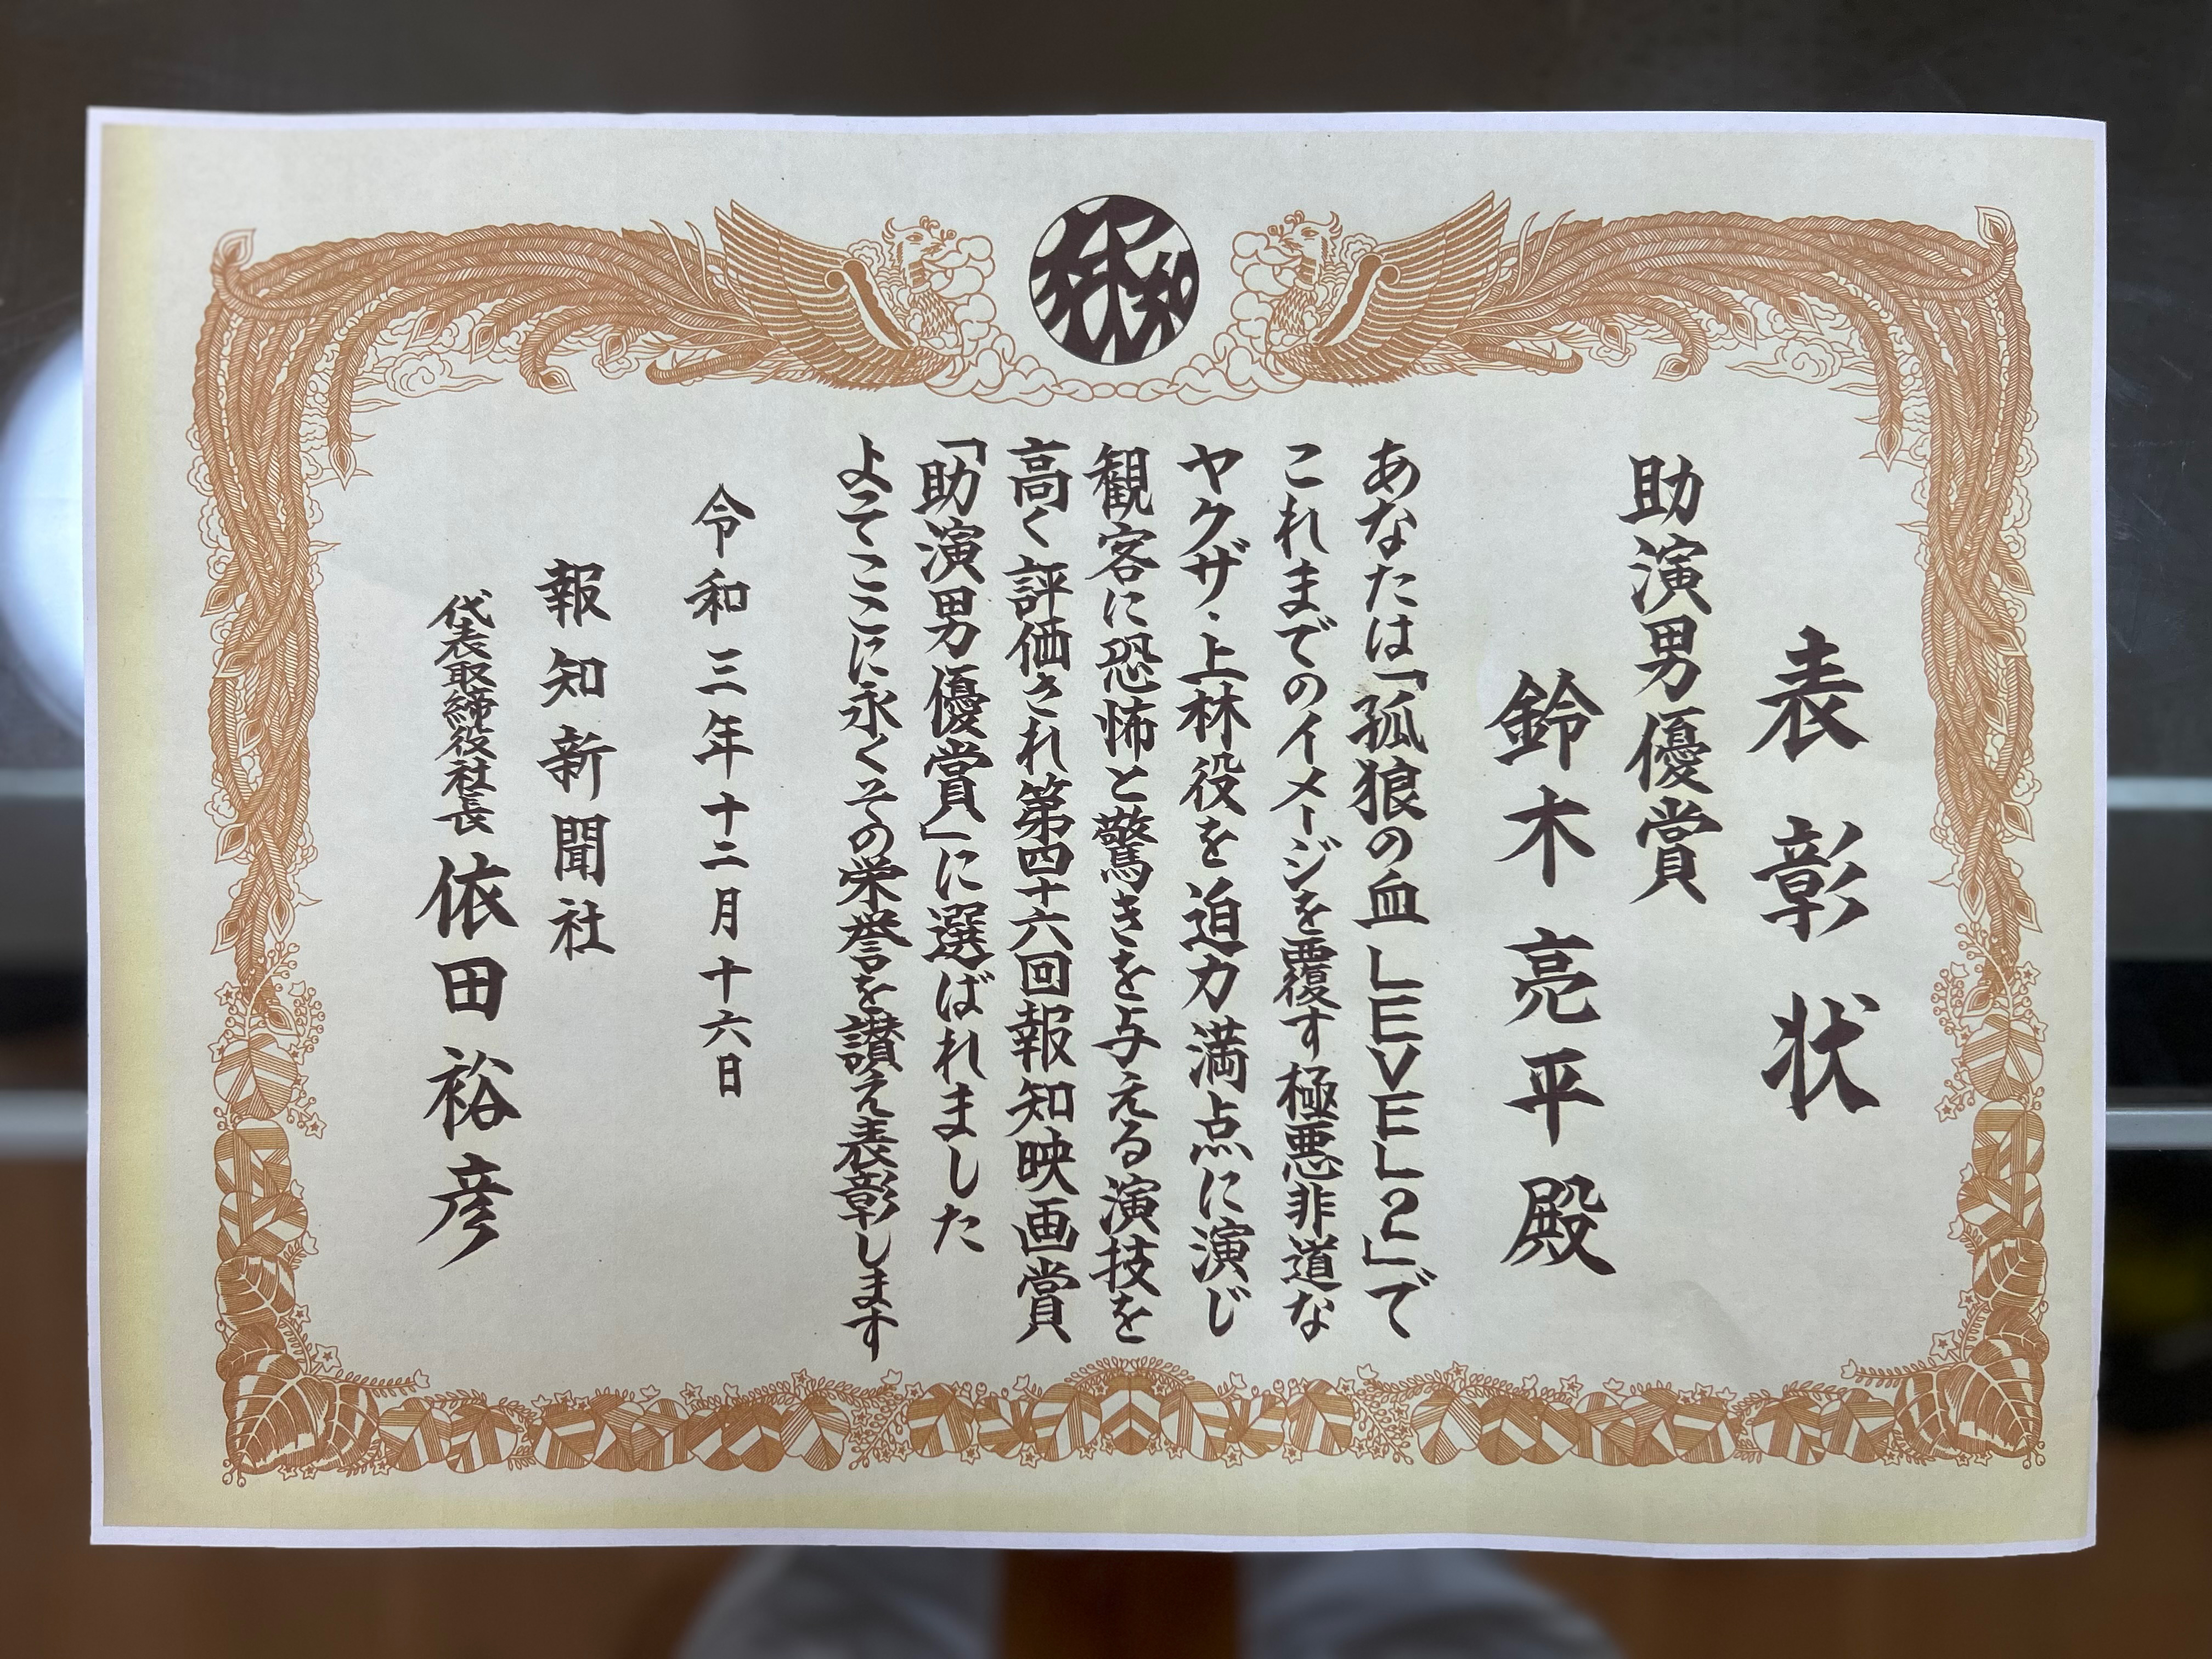 表彰状
助演男優賞
鈴木亮平殿
あなたは「孤狼の血LEVEL2」で
これまでのイメージを覆す極悪非道な
ヤクザ・上林役を迫力満点に演じ
観客に恐怖と驚きを与える演技を
高く評価され第四十六回報知映画賞
「助演男優賞」に選ばれました
よってここに永くその栄誉を讃え表彰します
令和三年十二月十六日
報知新聞社
代表取締役社長 依田裕彦
報知